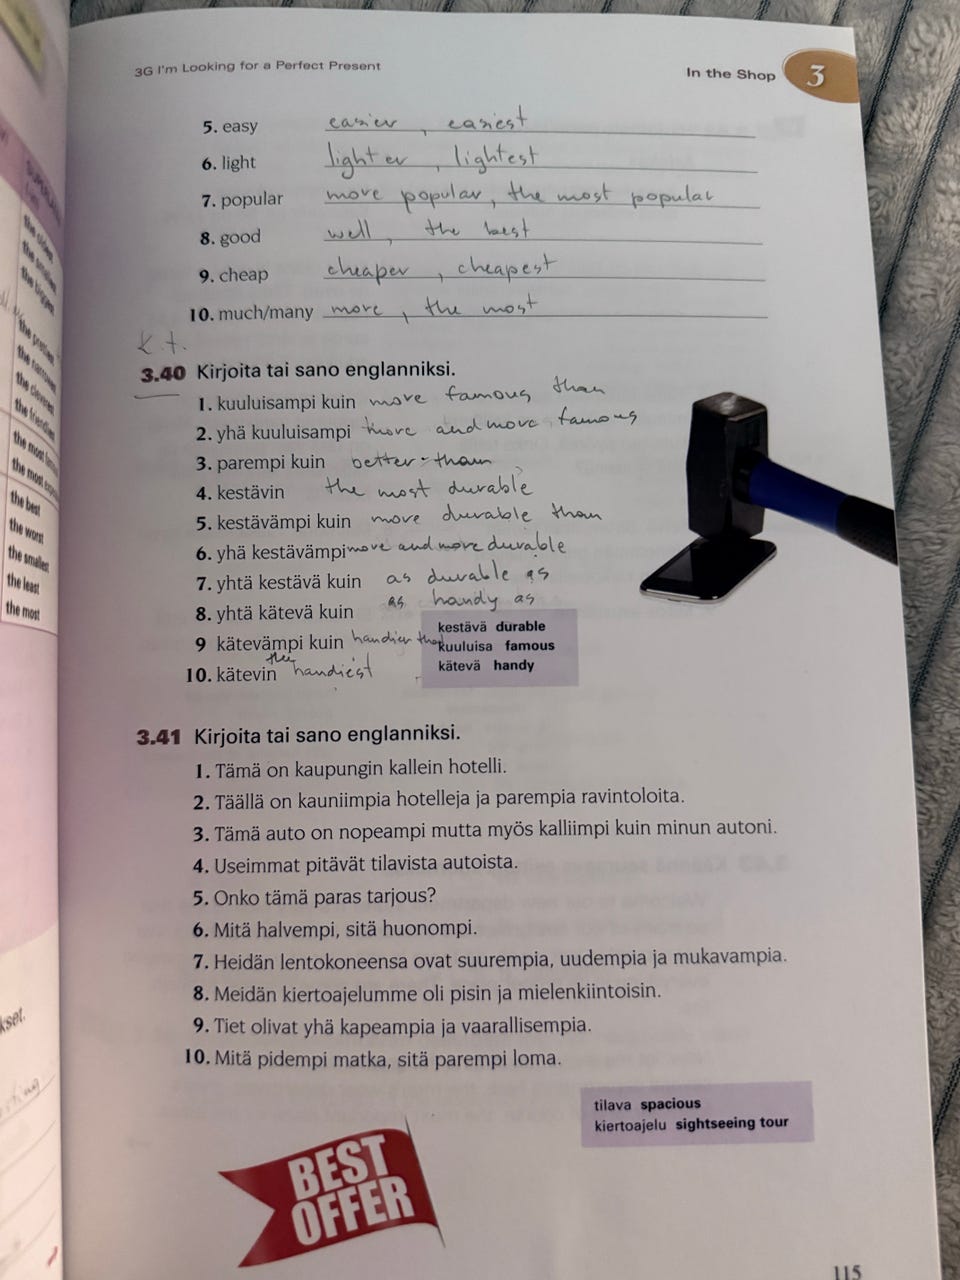 3G I'm Looking for a Perfect Present
In the Shop 3
5. easy easier, easiest
6. light lighter, lightest
7. popular more popular, the most popular
8. good well, the best
9. cheap cheaper, cheapest
10. much/many more, the most
K.t.
3.40 Kirjoita tai sano englanniksi.
1. kuuluisampi kuin more famous than
2. yhä kuuluisampi more and more famous
3. parempi kuin better than
4. kestävin the most durable
5. kestävämpi kuin more durable than
6. yhä kestävämpi more and more durable
7. yhtä kestävä kuin as durable as
8. yhtä kätevä kuin as handy as
9 kätevämpi kuin handier than
10. kätevin the handiest
kestävä durable
kuuluisa famous
kätevä handy
3.41 Kirjoita tai sano englanniksi.
1. Tämä on kaupungin kallein hotelli.
2. Täällä on kauniimpia hotelleja ja parempia ravintoloita.
3. Tämä auto on nopeampi mutta myös kalliimpi kuin minun autoni.
4. Useimmat pitävät tilavista autoista.
5. Onko tämä paras tarjous?
6. Mitä halvempi, sitä huonompi.
7. Heidän lentokoneensa ovat suurempia, uudempia ja mukavampia.
8. Meidän kiertoajelumme oli pisin ja mielenkiintoisin.
9. Tiet olivat yhä kapeampia ja vaarallisempia.
10. Mitä pidempi matka, sitä parempi loma.
tilava spacious
kiertoajelu sightseeing tour
BEST
OFFER
115
the best
the worst
the smallest
the least
the most